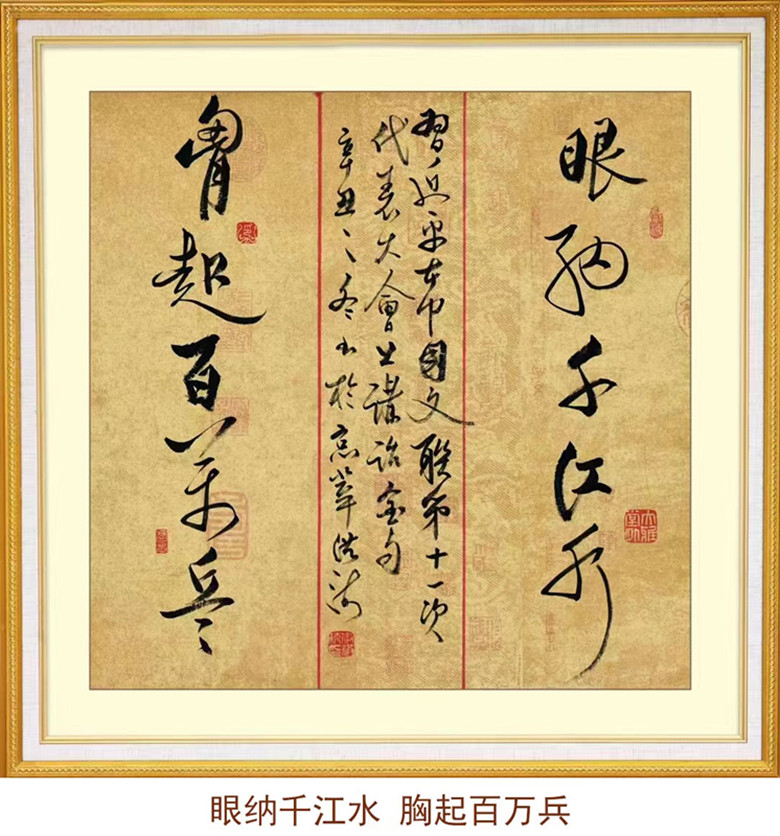 眼纳千江水
習近平在中国文联第十一次
代表大會上講話金句
辛丑之冬书於京華洪涛
胷起百万兵
眼纳千江水 胸起百万兵